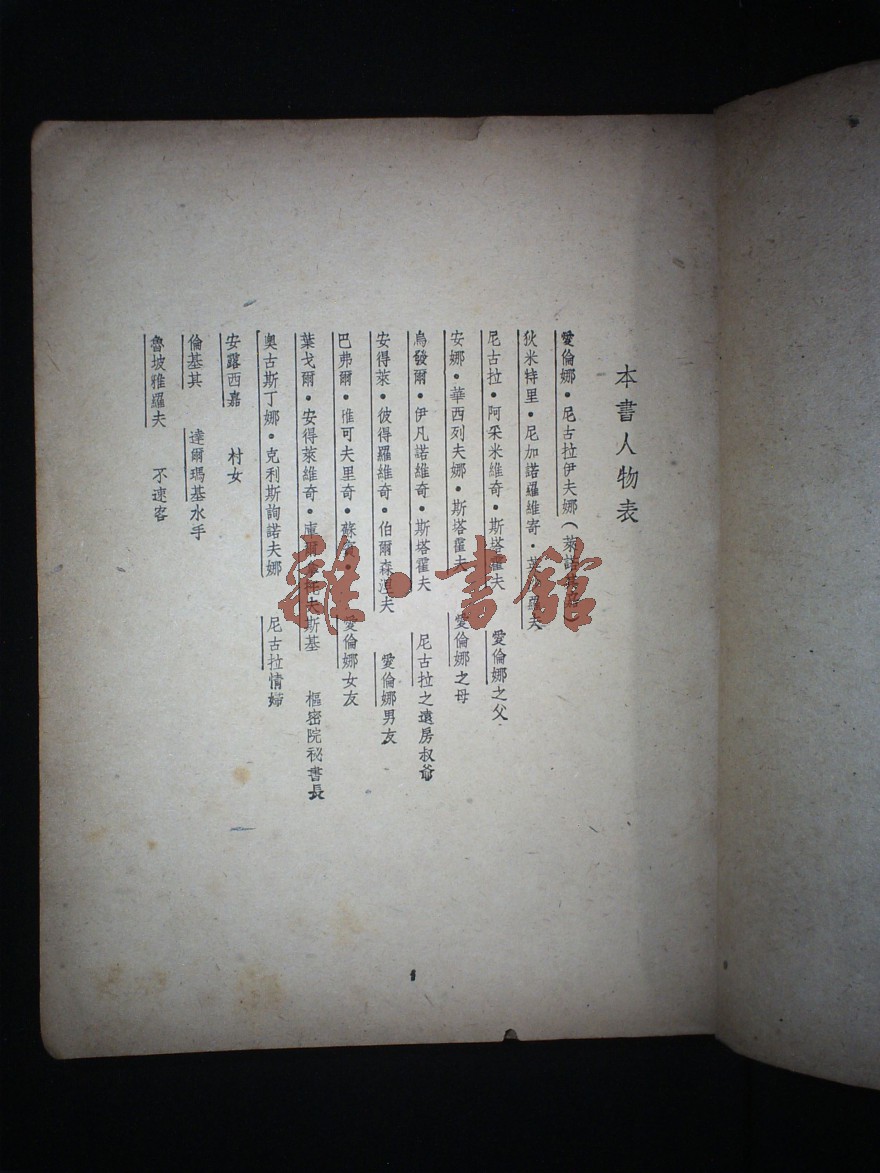 本書人物表
愛倫娜•尼古拉伊夫娜(萊諾
狄米特里•尼加諾羅維奇•英 羅夫
尼古拉•阿采米維奇•斯塔霍夫 愛倫娜之父
安娜•華西列夫娜•斯塔霍夫 愛倫娜之母
烏發爾•伊凡諾維奇•斯塔霍夫 尼古拉之遠房叔爺
安得萊•彼得羅維奇•伯爾森涅夫 愛倫娜男友
巴弗爾•惟可夫里奇•蘇賓 愛倫娜女友
葉戈爾•安得萊維奇•庫爾 托夫斯基 樞密院秘書長
奧古斯丁娜•克利斯詢諾夫娜 尼古拉情婦
安露西嘉 村女
倫基其 達爾瑪基水手
魯坡雅羅夫 不速客
雜•書館